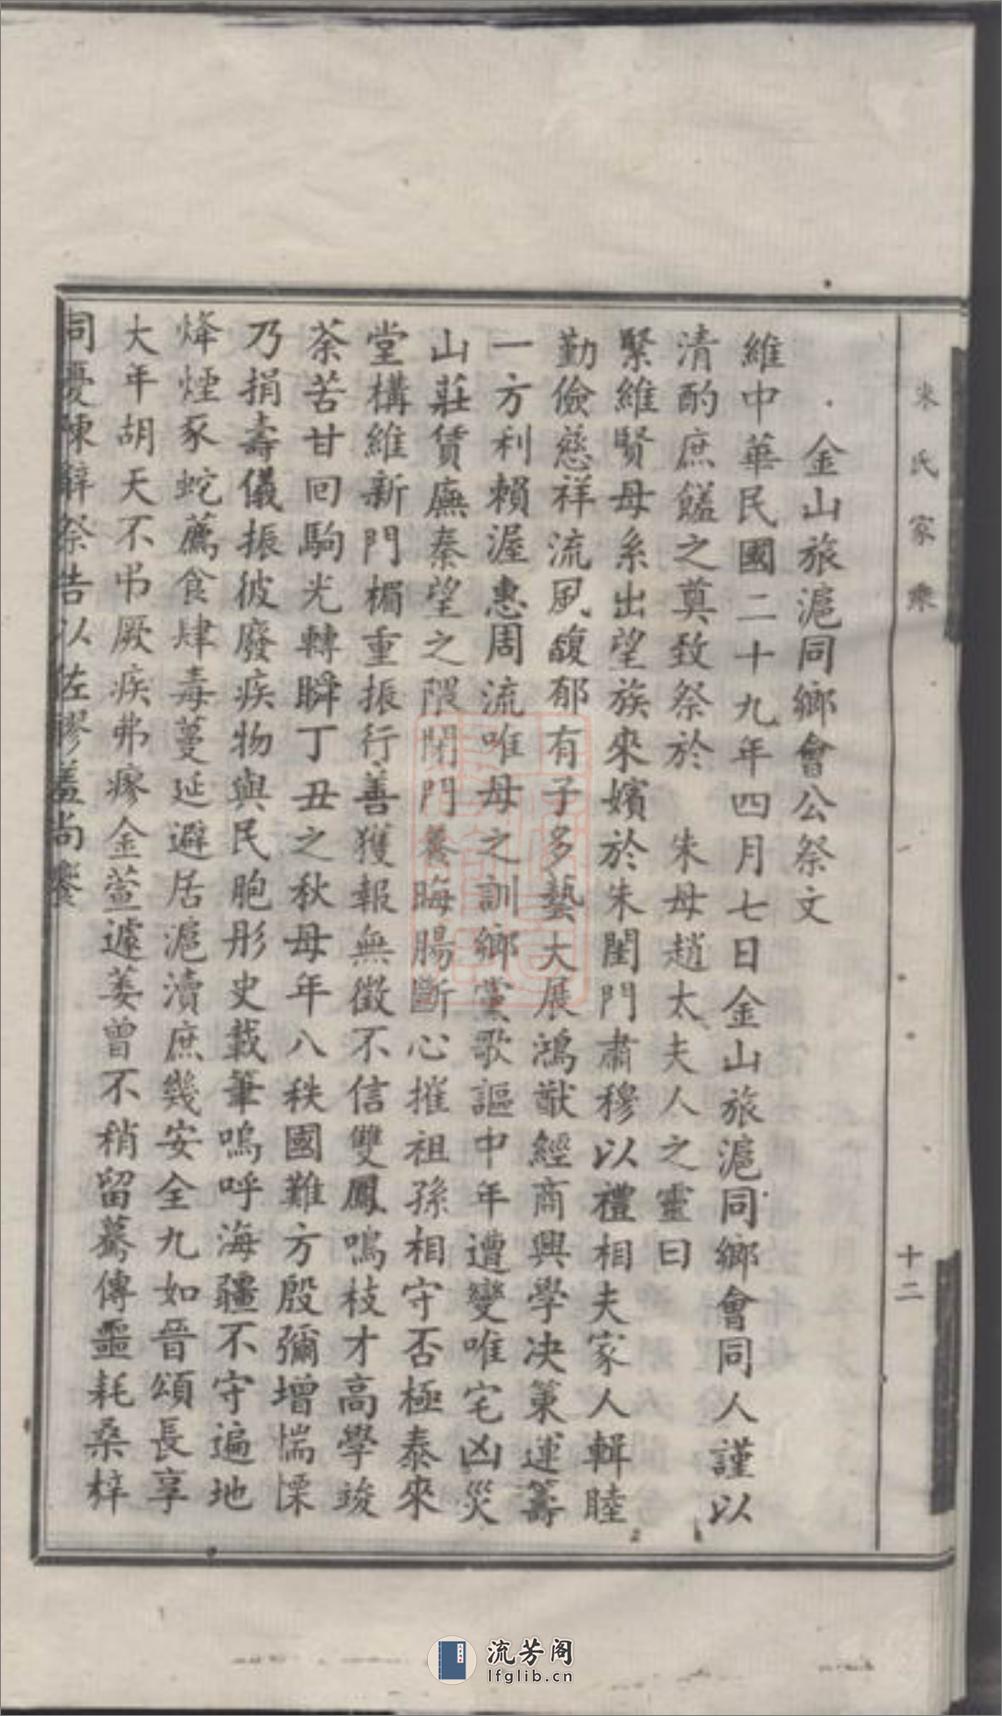 朱氏家乘
十二
金山旅滬同鄉會公祭文
維中華民國二十九年四月七日金山旅滬同鄉會同人謹以
清酌庶饈之奠致祭於 朱母趙太夫人之靈曰
緊維賢母系出望族來嬪於朱閨門肅穆以禮相夫家人輯睦
勤儉慈祥流風馥郁有子多藝大展鴻猷經商興學決策運籌
一方利賴渥惠周流唯母之訓鄉黨歌謳中年遭變唯宅凶災
山莊賃廡秦望之隈閉門養晦腸斷心摧祖孫相守否極泰來
堂構維新門楣重振行善獲報無徵不信雙鳳鳴枝才高學竣
荼苦甘回駒光轉瞬丁丑之秋母年八秩國難方殷彌增惴慄
乃捐壽儀振彼廢疾物與民胞彤史載筆嗚呼海疆不守遍地
烽煙豕蛇薦食肆毒蔓延避居滬瀆庶幾安全九如晉頌長享
大年胡天不弔厥疾弗瘳金萱遽萎曾不稍留驀傳噩耗桑梓
同憂陳辭祭告以佐膠羞尚饗
流芳阁
lfglib.cn